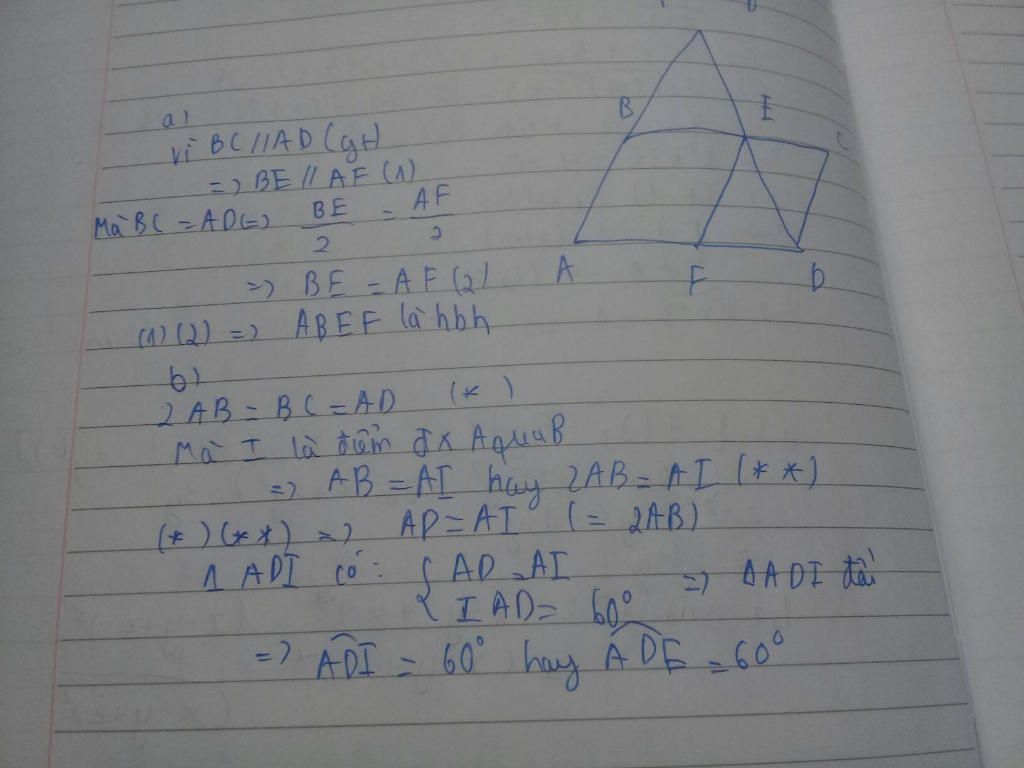 a)
Vì BC // AD (gt)
=> BE // AF (1)
Mà BC = AD => BE/2 = AF/2
=> BE = AF (2)
(1) (2) => ABEF là hbh
b)
2AB = BC = AD (*)
Mà I là điểm đx A qua B
=> AB = AI hay 2AB = AI (**)
(*) (**) => AD = AI (= 2AB)
Δ ADI có : { AD = AI => Δ ADI đều
IAD = 60°
=> ADI = 60° hay ADE = 60°
B
E
C
A
F
D